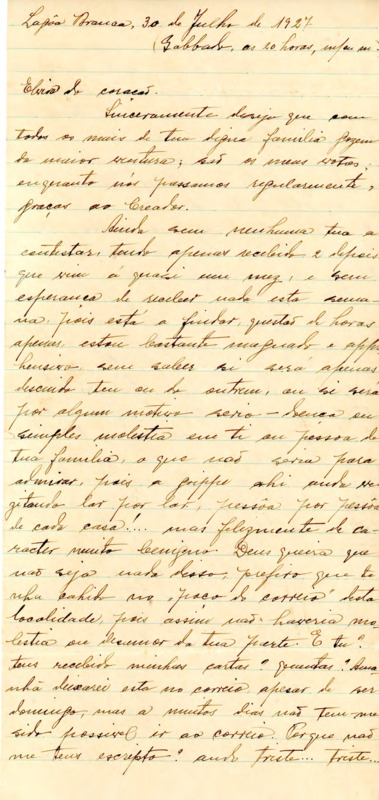 Lagôa Branca, 30 de Julho de 1927
(Sabbado, as 20 horas,
Elvira do coração.
Sinceramente desejo que com
todos os mais de tua digna familia gozem
da maior ventura; são os meus votos,
enquanto nós passamos regularmente,
graças ao Creador.
Ainda sem nenhuma tua a
contestar, tendo apenas recebido 2 depois
que vim á quasi um mez, e sem
esperança de receber nada esta sema-
na, pois está a findar, questão de horas
apenas, estou bastante maguado e app
hensivo, sem saber si será apenas
descuido teu ou de outrem, ou si será
por algum motivo serio - doença ou
simples molestia em ti ou pessôa de
tua familia, o que não seria para
admirar, pois a grippe ahi anda vi-
zitando lar por lar, pessôa por pessôa
de cada casa!... mas felizmente de ca-
racter muito benigno. Deus queira que
não seja nada disso, prefiro que te
nha cahido no "poço do correio" desta
localidade, pois assim não haveria mo-
lestia ou desamor da tua parte. E tu?
tens recebido minhas cartas? quantas? Ama-
nhã deixarei esta no correio apesar de ser
domingo, mas a muitos dias não tem-me
sido possivel ir ao correio. Porque não
me tens escripto? ando triste... triste...